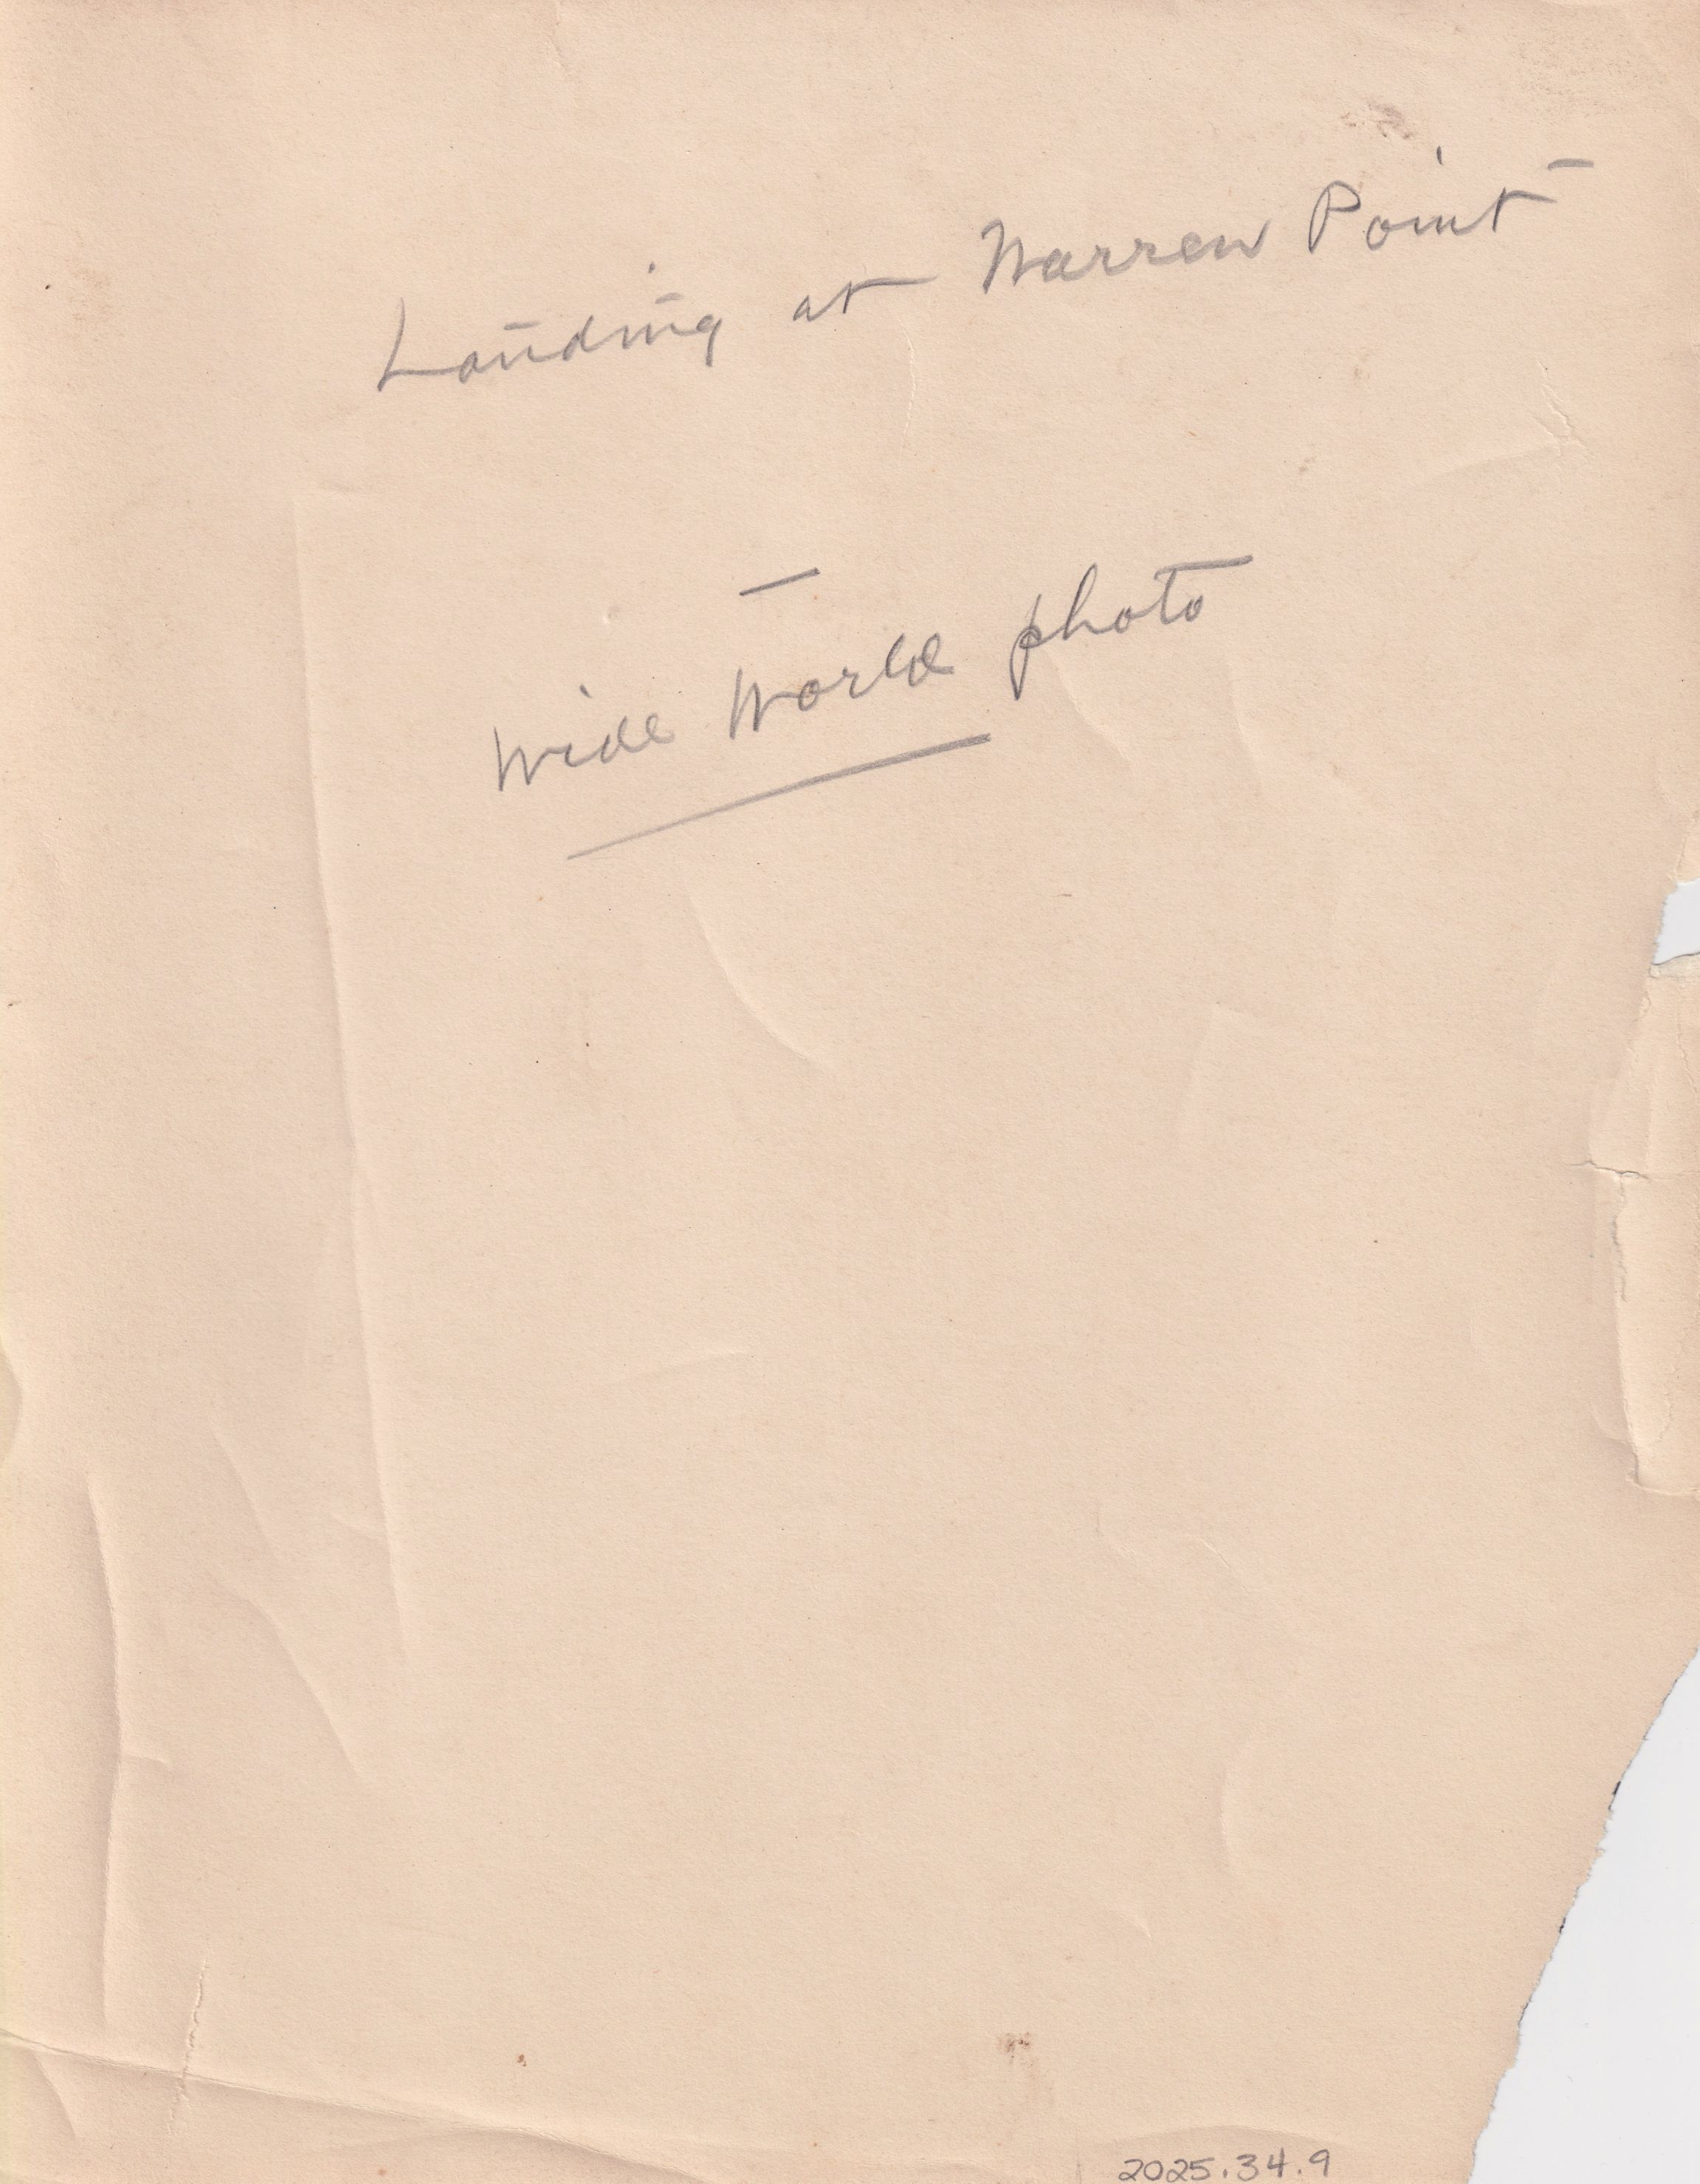 Landing at Warren Point
Wide World photo
2025.34.9